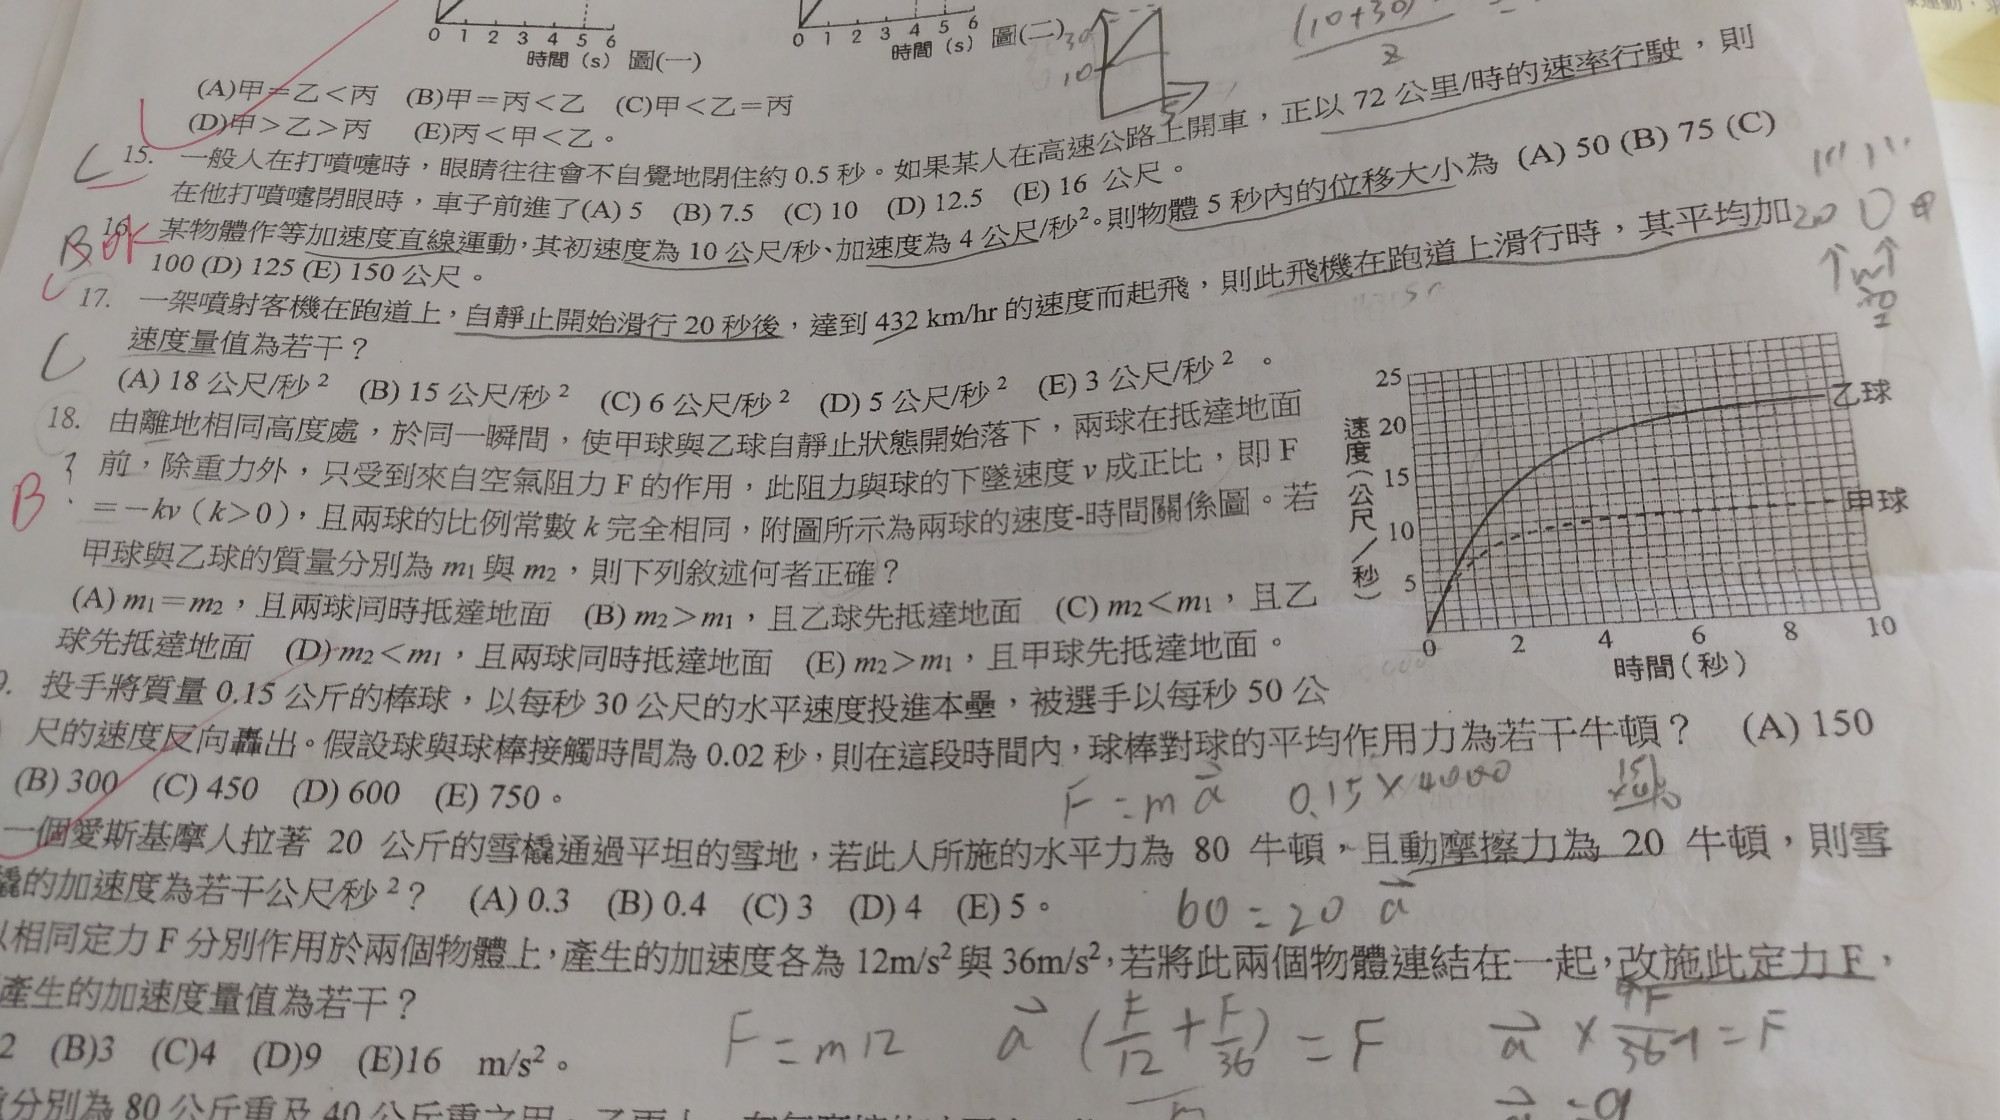 0 1 2 3 4 5 6
時間 (s) 圖(一)
0 1 2 3 4 5 6
時間 (s) 圖(二)
30
10
5
(10+30)
2
(A)甲=乙<丙 (B)甲=丙<乙 (C)甲<乙=丙
(D)甲>乙>丙 (E)丙<甲<乙。
C 15. 一般人在打噴嚏時,眼睛往往會不自覺地閉住約 0.5 秒。如果某人在高速公路上開車,正以 72 公里/時的速率行駛,則
在他打噴嚏閉眼時,車子前進了(A) 5 (B) 7.5 (C) 10 (D) 12.5 (E) 16 公尺。
B OK 16. 某物體作等加速度直線運動,其初速度為 10 公尺/秒、加速度為 4 公尺/秒²。則物體 5 秒內的位移大小為 (A) 50 (B) 75 (C)
100 (D) 125 (E) 150 公尺。
C 17. 一架噴射客機在跑道上,自靜止開始滑行 20 秒後,達到 432 km/hr 的速度而起飛,則此飛機在跑道上滑行時,其平均加
速度量值為若干?
(A) 18 公尺/秒² (B) 15 公尺/秒² (C) 6 公尺/秒² (D) 5 公尺/秒² (E) 3 公尺/秒²。
B ? 18. 由離地相同高度處,於同一瞬間,使甲球與乙球自靜止狀態開始落下,兩球在抵達地面
前,除重力外,只受到來自空氣阻力 F 的作用,此阻力與球的下墜速度 v 成正比,即 F
=-kv(k>0),且兩球的比例常數 k 完全相同,附圖所示為兩球的速度-時間關係圖。若
甲球與乙球的質量分別為 m₁ 與 m₂,則下列敘述何者正確?
(A) m₁=m₂,且兩球同時抵達地面 (B) m₂>m₁,且乙球先抵達地面 (C) m₂<m₁,且乙
球先抵達地面 (D) m₂<m₁,且兩球同時抵達地面 (E) m₂>m₁,且甲球先抵達地面。
速度(公尺/秒)
25
20
15
10
5
0 2 4 6 8 10
時間(秒)
乙球
甲球
9. 投手將質量 0.15 公斤的棒球,以每秒 30 公尺的水平速度投進本壘,被選手以每秒 50 公
尺的速度反向轟出。假設球與球棒接觸時間為 0.02 秒,則在這段時間內,球棒對球的平均作用力為若干牛頓? (A) 150
(B) 300 (C) 450 (D) 600 (E) 750。
F=ma 0.15×4000
一個愛斯基摩人拉著 20 公斤的雪橇通過平坦的雪地,若此人所施的水平力為 80 牛頓,且動摩擦力為 20 牛頓,則雪
橇的加速度為若干公尺/秒²? (A) 0.3 (B) 0.4 (C) 3 (D) 4 (E) 5。
60=20 a
以相同定力 F 分別作用於兩個物體上,產生的加速度各為 12m/s² 與 36m/s²,若將此兩個物體連結在一起,改施此定力 F,
產生的加速度量值為若干?
2 (B)3 (C)4 (D)9 (E)16 m/s²。
F=m12 a (F/12+F/36)=F a×4F/36=F
a=9
分別為 80 公斤重及 40 公斤重之甲、乙兩人